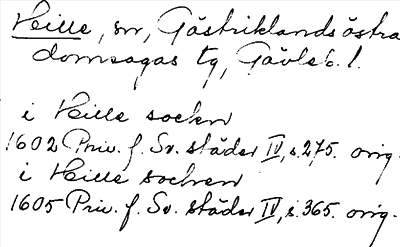 Hille, sn, Gästriklands östra
domsagas tg, Gävleb. l.
i Hille socken
1602 Priv. f. Sv. städer IV, s. 275. orig.
i Hille sochen
1605 Priv. f. Sv. städer IV, s. 365. orig.